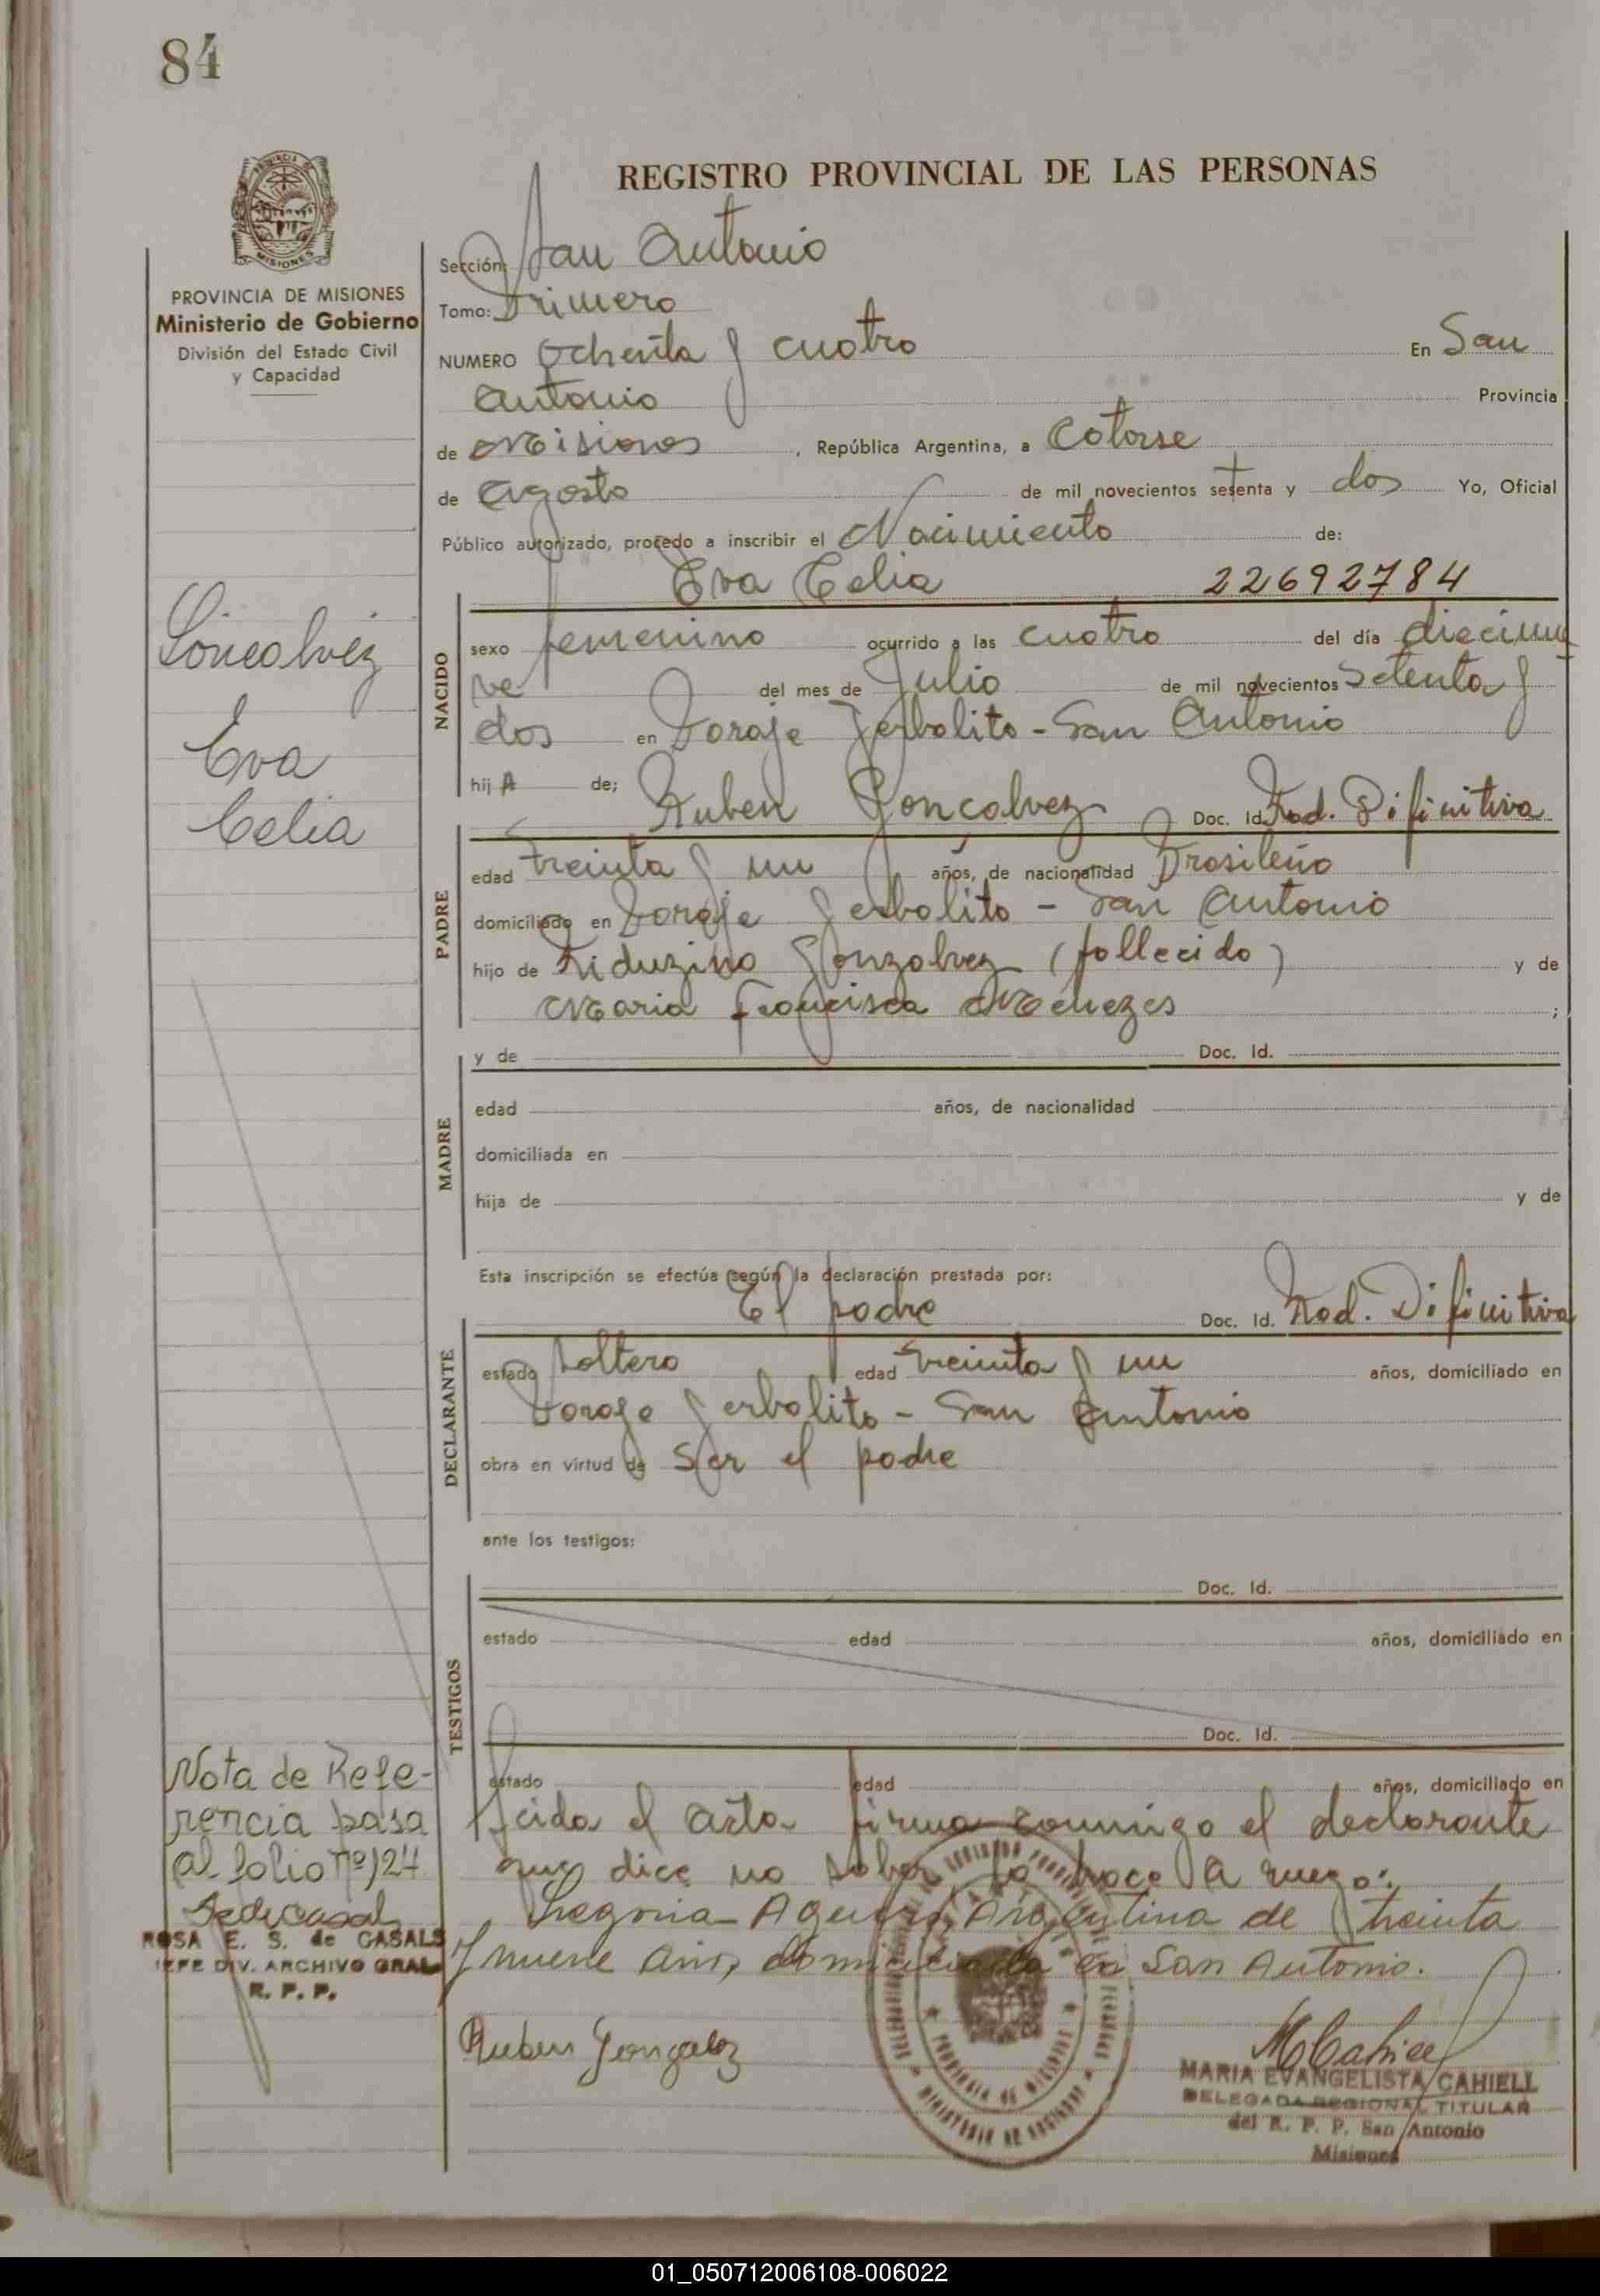 84
REGISTRO PROVINCIAL DE LAS PERSONAS
PROVINCIA DE MISIONES
Ministerio de Gobierno
División del Estado Civil
y Capacidad
Sección: San Antonio
Tomo: Primero
NUMERO Ochenta y cuatro En San
Antonio Provincia
de Misiones, República Argentina, a Catorse
de Agosto de mil novecientos setenta y dos Yo, Oficial
Público autorizado, procedo a inscribir el Nacimiento de:
Eva Celia 22692784
Goncalvez
Eva
Celia
NACIDO
sexo femenino ocurrido a las cuatro del día diecinue
ve del mes de Julio de mil novecientos setenta y
dos en Paraje Yerbalito - San Antonio
hij A de; Ruben Goncalvez Doc. Id. Rad. Difinitiva
PADRE
edad treinta y un años, de nacionalidad Brasileña
domiciliado en Paraje Yerbalito - San Antonio
hijo de Liduzino Gonzalvez (fallecido) y de
Maria Francisca Menezes ;
MADRE
y de Doc. Id.
edad años, de nacionalidad
domiciliada en
hija de y de
Esta inscripción se efectúa según la declaración prestada por:
El padre Doc. Id. Rad. Difinitiva
DECLARANTE
estado Soltero edad treinta y un años, domiciliado en
Paraje Yerbalito - San Antonio
obra en virtud de Ser el padre
ante los testigos:
TESTIGOS
Doc. Id.
estado edad años, domiciliado en
Doc. Id.
estado edad años, domiciliado en
el acta firma conmigo el declarante
que dice no saber, lo hace a ruego:
Aguero, Argentina de treinta
y nueve años, domiciliada en San Antonio.
Nota de Refe-
rencia pasa
al folio nº 124
ROSA E. S. de CASALS
JEFE DIV. ARCHIVO GRAL.
R. P. P.
Ruben Gonzalez
MCahiell
MARIA EVANGELISTA CAHIELL
DELEGADA REGIONAL TITULAR
del R. P. P. San Antonio
Misiones
01_050712006108-006022